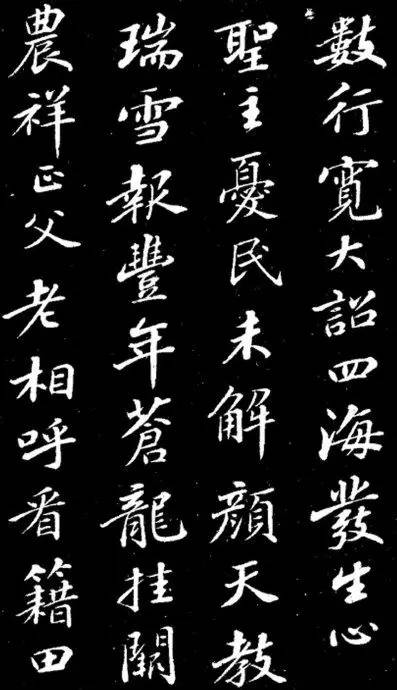 數行寬大詔四海發生心
聖主憂民未解顏天教
瑞雪報豐年蒼龍挂闕
農祥正父老相呼看籍田